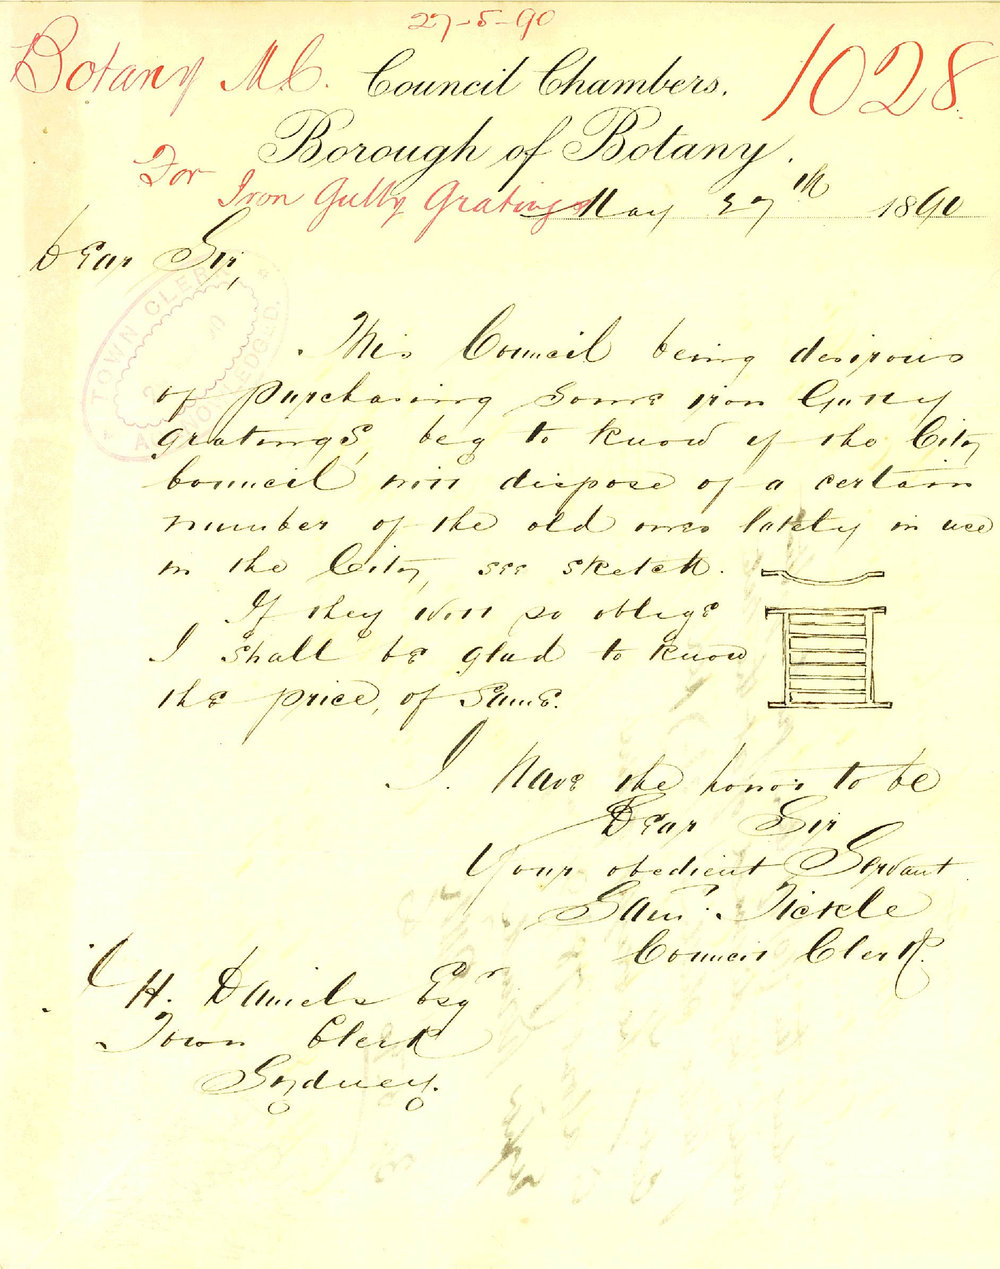 27-5-90
Botany M.C. Council Chambers. 1028
Borough of Botany.
For
Iron Gully Gratings May 27th 1890
Dear Sir,
TOWN CLERK
ACKNOWLEDGED.
This Council being desirous
of purchasing some iron Gully
gratings, beg to know if the City
Council will dispose of a certain
number of the old ones lately in use
in the City, see sketch.
If they will so oblige
I shall be glad to know
the price, of same.
I have the honor to be
Dear Sir
Your obedient Servant
Saml. Tickle
Council Clerk
H. Daniels Esqr
Town Clerk
Sydney.